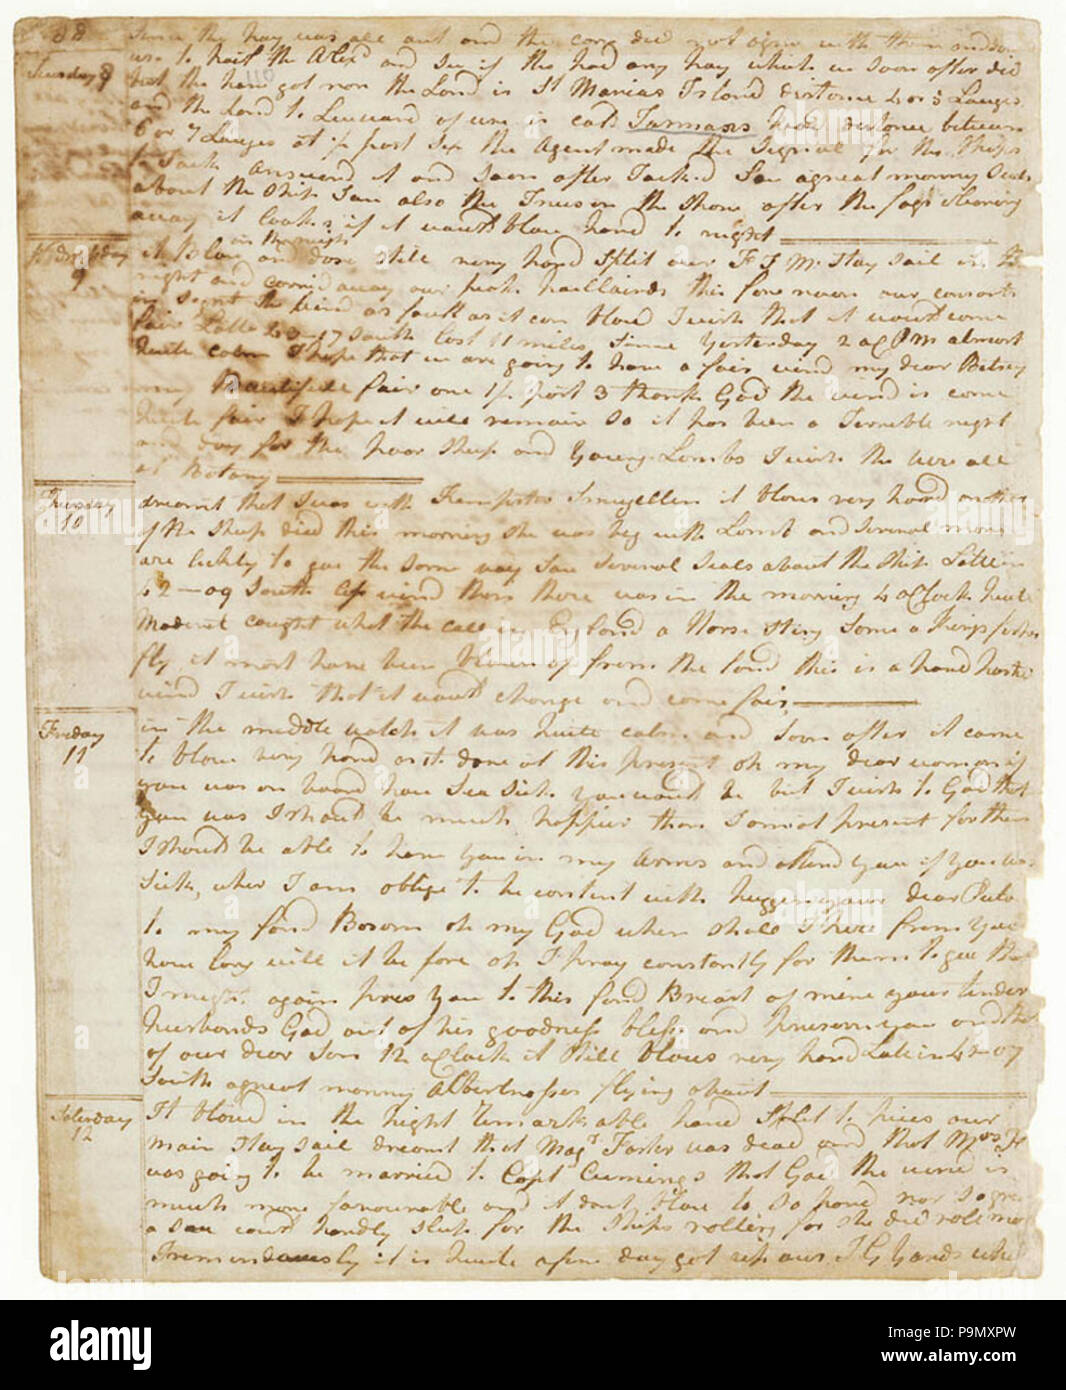 88 since the hay was all out and the corn did not agree with them and
was to hail the Alexr and see if the had any hay which we soon after did
Tuesday 8 but the have got non the Land is St Marias Island distance 4 or 5 Leagues
and the Land to Leuward of ure is cald Tasmans head distance between
6 or 7 Leagues at ½ past Six the Agent made the Signal for the Ships
to Tack answered it and soon after Tacked Saw a great manny Seals
about the Ship Saw also the Trees on the Shore after the fogs clearing
away it looks as if it would blow hard to night
Wednesday 9 it Blew in the night and dose still very hard Split our F T M Stay sail in the
night and carried away our peak halliards this fore noon our consorts
in Seight the wind as foull as it can blow I wish that it would come
fair Latte 43–17 South lost 11 miles Since Yesterday 2 oClock PM almost
quite calm I hope that we are going to have a fair wind my dear Betsey
my Beautifull fair one ½ past 3 thank God the wind is come
quite fair I hope it will remain so it has been a Terrible night
and day for the poor Sheep and Young Lambs I wish the were all
at Botany
Thursday 10 dreamt that I was with Kempster Smuglen it blows very hard another
of the Sheep died this morning she was big with Lamb and several more
are lickly to goe the same way saw several Seals about the Ship Latte in
42–09 South wind thare there was in the morning 4 oClock quite
moderat caught what the call in England a Horse Sting Some a Kingsfisher
fly it most have been blown of from the land this is a hard harted
wind I wish that it would change and come fair
Friday 11 in the middle watch it was quite calm and soon after it came
to blow very hard as it dose at this present oh my dear woman if
you was on board how Sea Sick you would be but I wish to God that
you was I should be much happier than I am at present for then
I should be able to have you in my arms and attend you if you was
Sick, wher I am oblige to be content with huggen your dear
to my fond Bosom oh my God when shall I hear from you
how long will it be fore oh I pray constantly for them to goe that
I might again pres you to this fond Breast of mine your tinder
husbands God out of his goodness bless and preserve you and the
of our dear Son 12 oClock it Still blows very hard Latte in 42–07
South a great manny Albertrosses flying about
Saturday 12 It blowed in the night remarkable hard Split to pices our
main Stay sail dreamt that Magr Foster was dead and that Mrs F
was going to be married to Capt Cumings that God the wind is
much more favourable and it dont blow to so hard nor so grea
a Sea could hardly Sleep for the Ships rolling for she did roll most
Tremendously it is quite a fine day got up our T G Yards whe
alamy
alamy
Image ID: P9MXPW
www.alamy.com